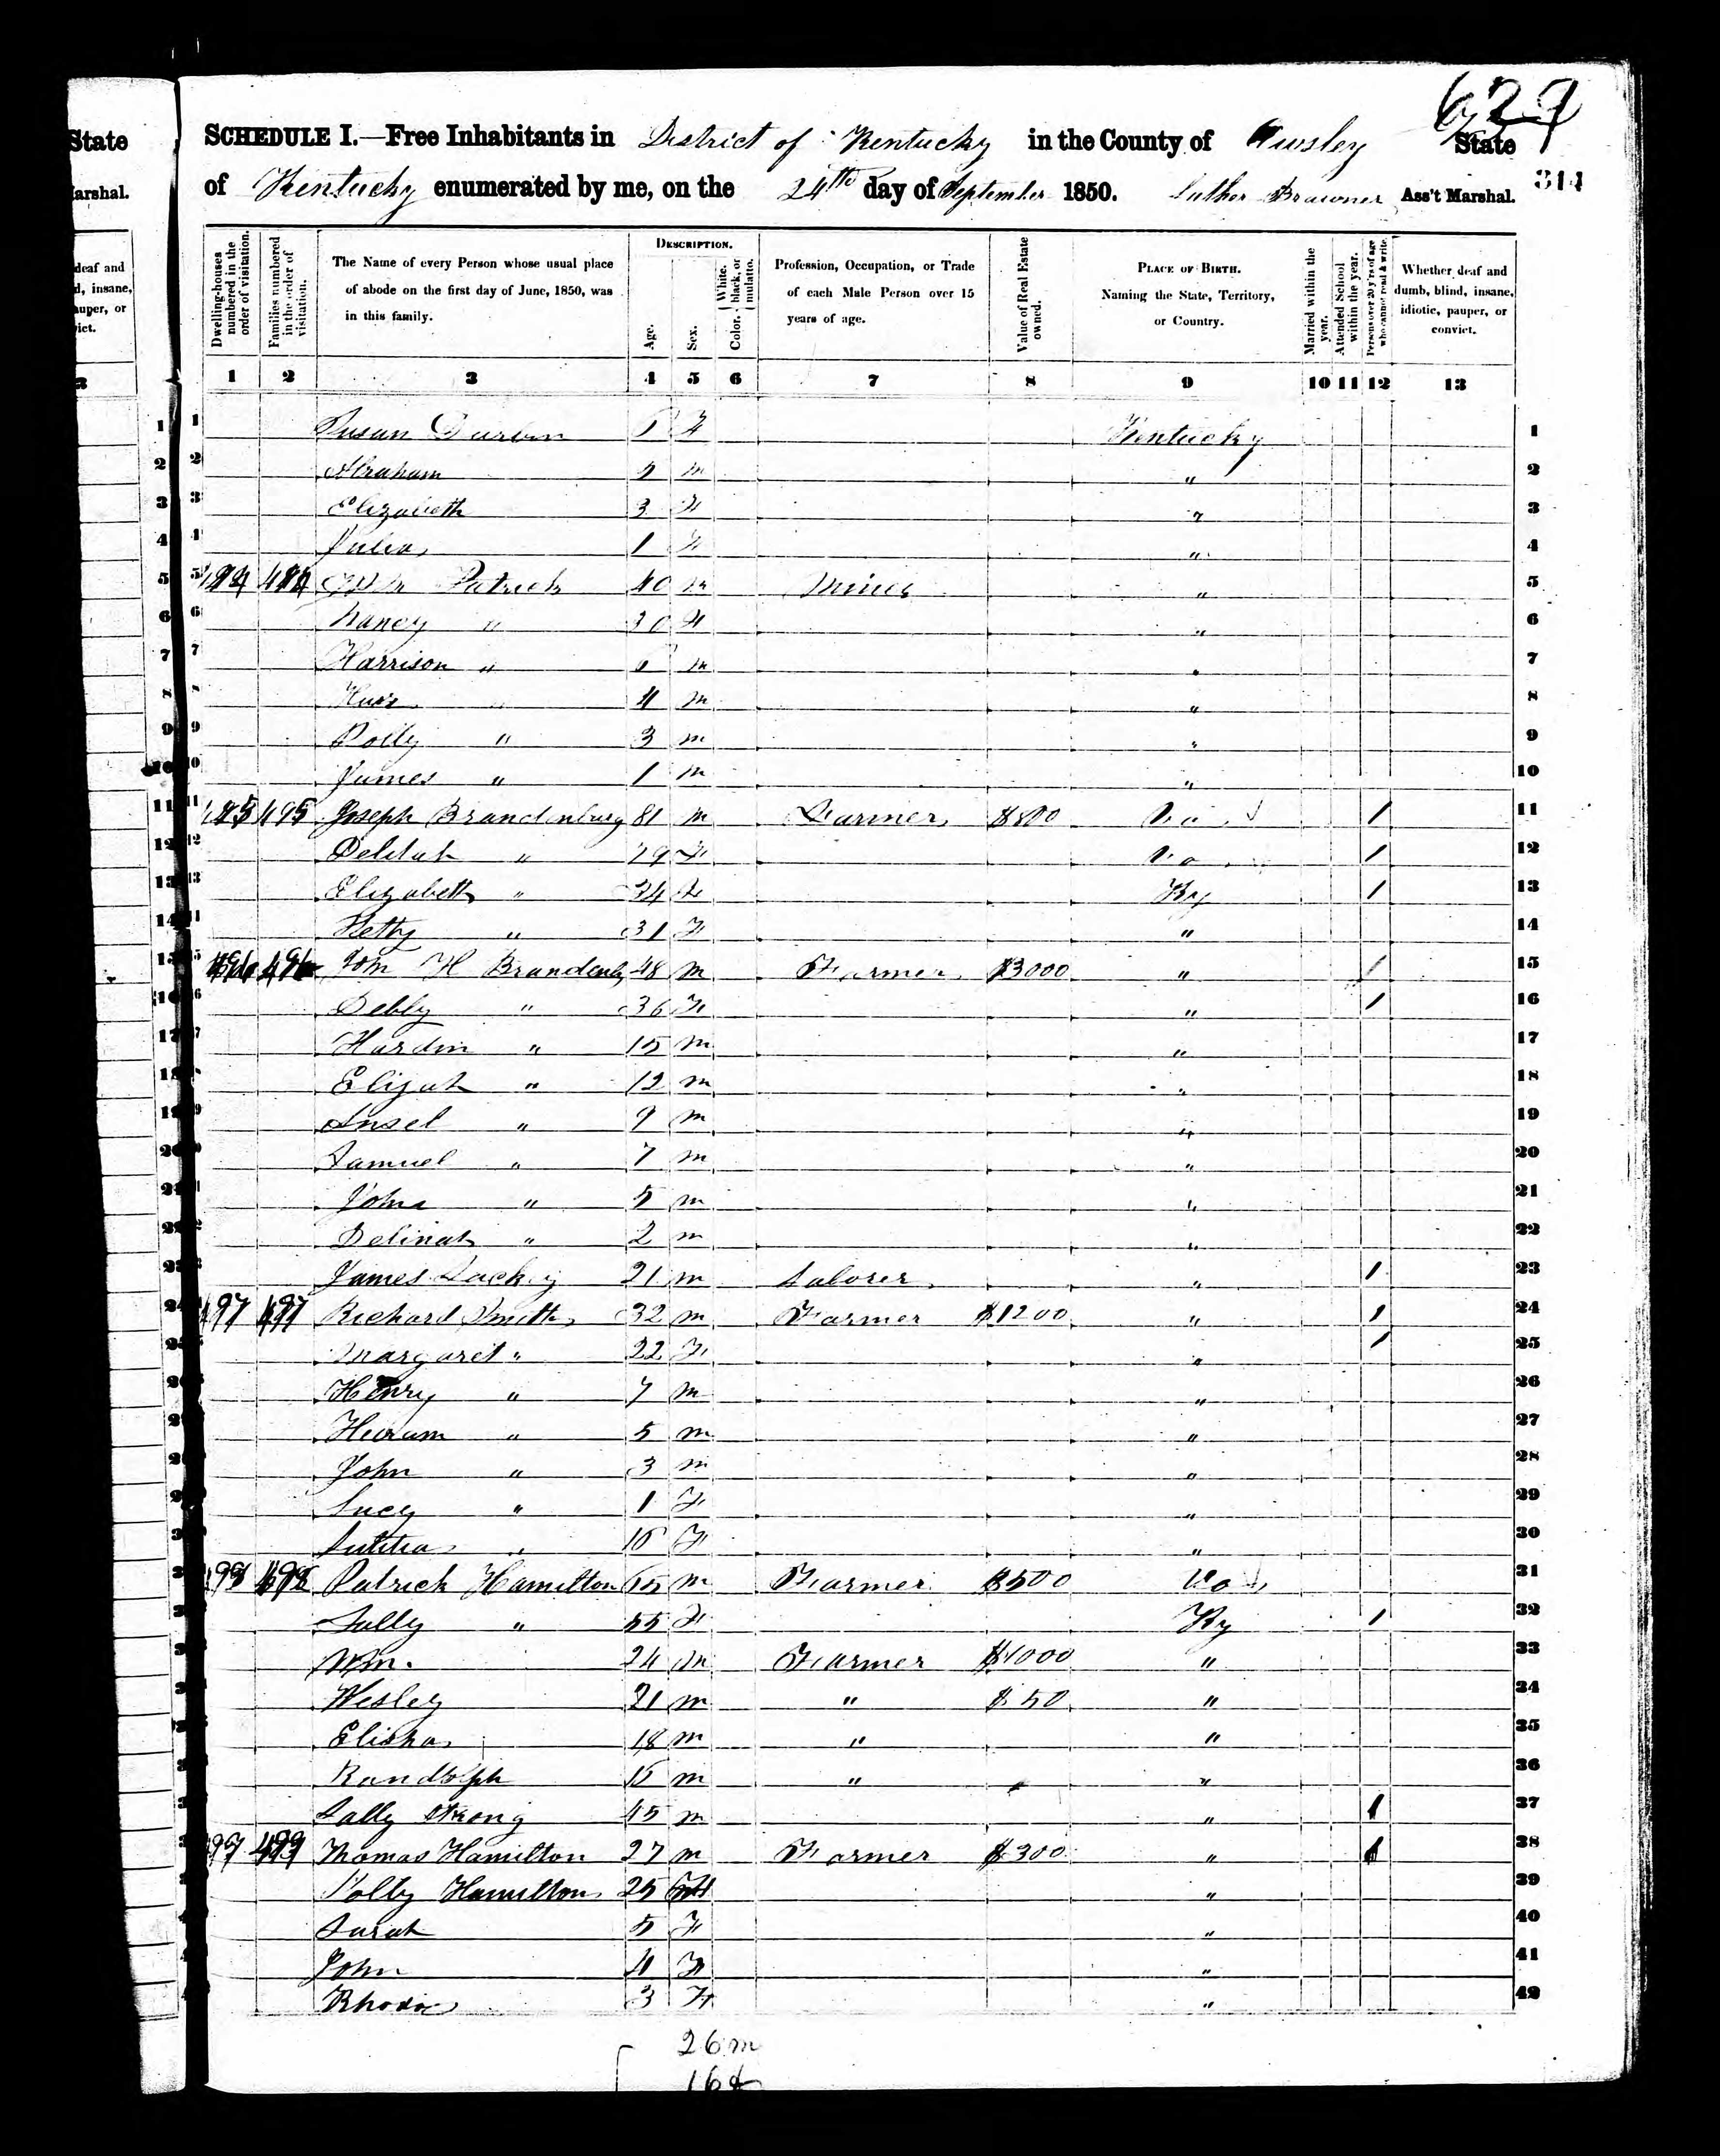 627
State
arshal.
deaf and
d, insane,
auper, or
ict.
SCHEDULE I.—Free Inhabitants in District of Kentucky in the County of Owsley State
of Kentucky enumerated by me, on the 24th day of September 1850. Luther Brawner Ass't Marshal.
314
Dwelling-houses numbered in the order of visitation.
Families numbered in the order of visitation.
The Name of every Person whose usual place of abode on the first day of June, 1850, was in this family.
DESCRIPTION.
Age.
Sex.
Color. White, black, or mulatto.
Profession, Occupation, or Trade of each Male Person over 15 years of age.
Value of Real Estate owned.
PLACE OF BIRTH. Naming the State, Territory, or Country.
Married within the year.
Attended School within the year.
Persons over 20 y'rs of age who cannot read & write.
Whether deaf and dumb, blind, insane, idiotic, pauper, or convict.
1 2 3 4 5 6 7 8 9 10 11 12 13
1 Susan Durbin F Kentucky 1
2 Abraham 5 m " 2
3 Elizabeth 3 F " 3
4 Julia 1 F " 4
5 Patrick 40 m " 5
6 Nancy " 30 F " 6
7 Harrison " m " 7
8 " 4 m " 8
9 Polly " 3 m " 9
10 James " 1 m " 10
11 495 Joseph Brandenburg 81 m Farmer $800 Va 1 11
12 Delilah " 79 F Va 1 12
13 Elizabeth " 34 F Ky 1 13
14 Hetty " 31 F " 14
15 496 496 H Brandenbg 48 m Farmer $3000 " 1 15
16 Debby " 36 F " 1 16
17 Hardin " 15 m " 17
18 Elijah " 12 m " 18
19 Ansel " 9 m " 19
20 Samuel " 7 m " 20
21 John " 5 m " 21
22 " 2 m " 22
23 James Lackey 21 m Laborer " 1 23
24 497 497 Richard Smith 32 m Farmer $1200 " 1 24
25 Margaret " 22 F " 1 25
Henry " 7 m " 26
Hiram " 5 m " 27
John " 3 m " 28
Lucy " 1 F " 29
" F " 30
498 498 Patrick Hamilton 65 m Farmer $500 Va 31
Sally " 55 F Ky 1 32
Wm. 24 m Farmer $1000 " 33
Wesley 21 m " $50 " 34
Elisha 18 m " " 35
Randolph 15 m " " 36
Sally Strong 45 m " 1 37
499 499 Thomas Hamilton 27 m Farmer $300 " 1 38
Polly Hamilton 25 F " 39
Sarah 5 F " 40
John 4 " 41
Rhoda 3 F " 42
26 m
16 f